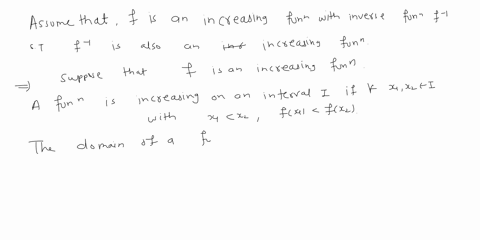 Assume that, f is an increasing funⁿ with inverse funⁿ f⁻¹
S.T f⁻¹ is also an increasing funⁿ.
⇒ Suppose that f is an increasing funⁿ.
A funⁿ is increasing on an interval I if ∀ x₁,x₂ ∈ I
with x₁ < x₂, f(x₁) < f(x₂)
The domain of a f